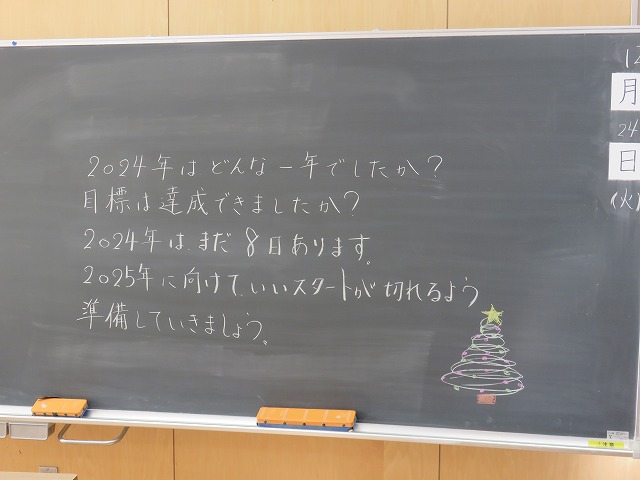 2024年はどんな一年でしたか？
目標は達成できましたか？
2024年は、まだ8日あります。
2025年に向けて、いいスタートが切れるよう
準備していきましょう。
12
月
24
日
(火)